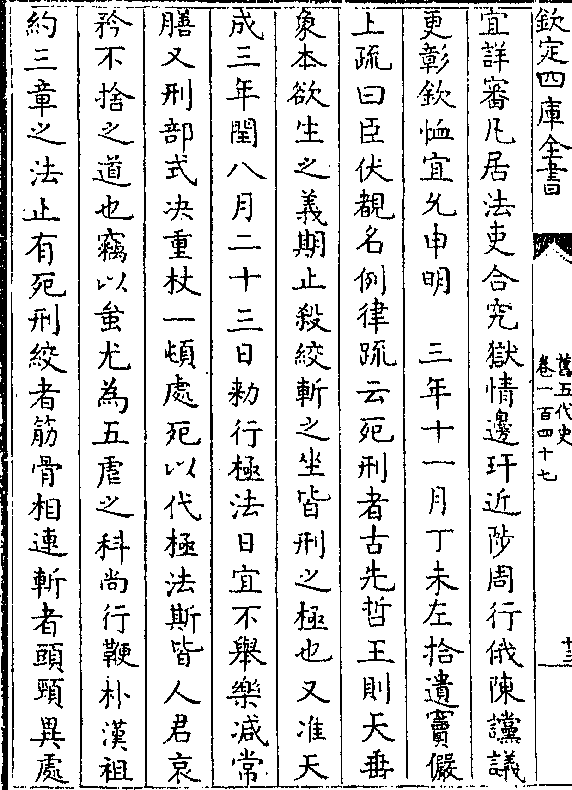 欽定四庫全書
舊五代史
卷一百四十七
十三
宜詳審凡居法吏合究獄情邊玕近陟周行俄陳讜議
更彰欽恤宜允申明　三年十一月丁未左拾遺竇儼
上疏曰臣伏覩名例律疏云死刑者古先哲王則天垂
象本欲生之義期止殺絞斬之坐皆刑之極也又准天
成三年閏八月二十三日勅行極法日宜不舉樂減常
膳又刑部式决重杖一頓處死以代極法斯皆人君哀
矜不捨之道也竊以蚩尤為五虐之科尚行鞭朴漢祖
約三章之法止有死刑絞者筋骨相連斬者頭頸異處